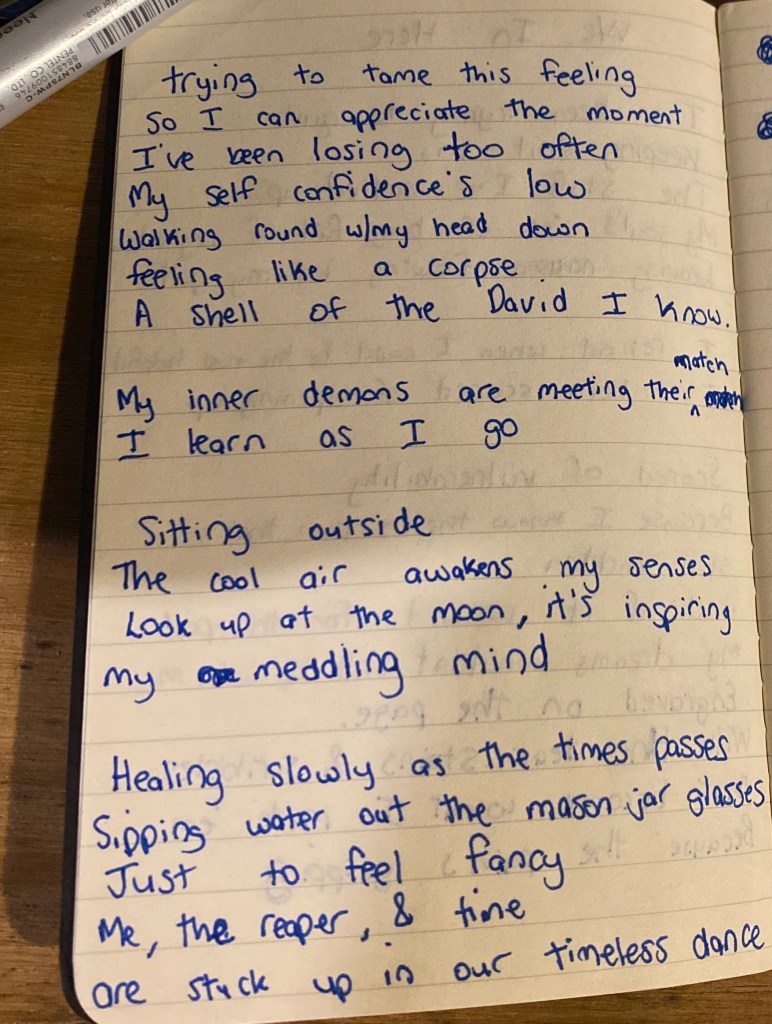 trying to tame this feeling
So I can appreciate the moment
I've been losing too often
My self confidence's low
Walking round w/my head down
feeling like a corpse
A shell of the David I know.
match
My inner demons are meeting their
I learn as I go
Sitting outside
The cool air awakens my senses
Look up at the moon, it's inspiring
my meddling mind
Healing slowly as the times passes
Sipping water out the mason jar glasses
Just to feel fancy
Me, the reaper, & time
are stuck up in our timeless dance
BLN75PW-C
PENTEL CO. LTD